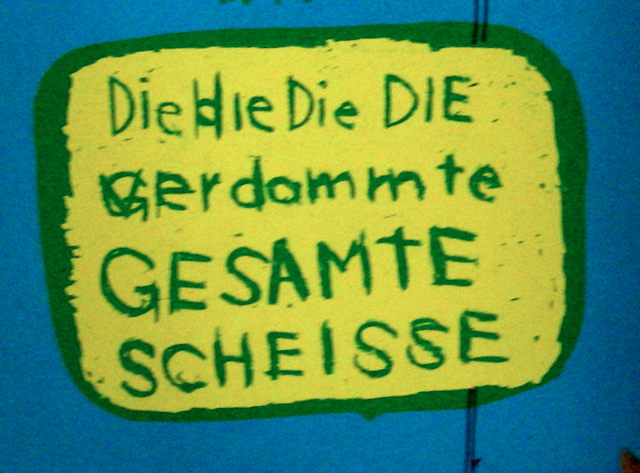 Die Die Die DIE
Verdammte
GESAMTE
SCHEISSE